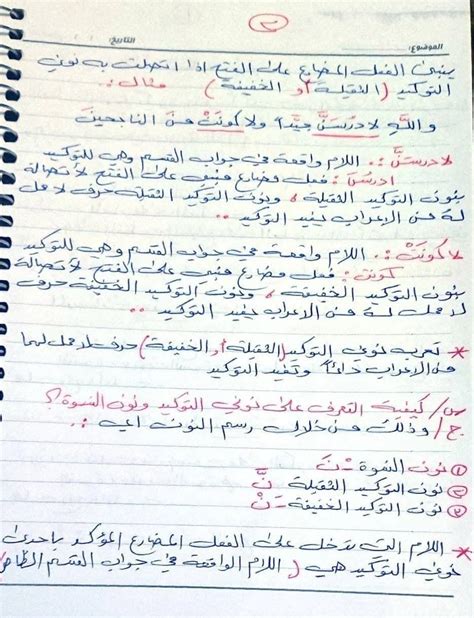 ٢
الموضوع: التاريخ:
يبنى الفعل المضارع على الفتح اذا اتصلت به نوني
التوكيد (الثقيلة أو الخفيفة) مثال :.
والله لادرسنَّ جيداً ولاكوننْ من الناجحين
لادرسنَّ :. اللام واقعة في جواب القسم وهي للتوكيد
ادرسنَ : فعل مضارع مبني على الفتح لاتصاله
بنون التوكيد الثقيلة ، ونون التوكيد الثقيلة حرف لا محل
له من الاعراب يفيد التوكيد ..
لاكوننْ :. اللام واقعة في جواب القسم وهي للتوكيد
كونن : فعل مضارع مبني على الفتح لاتصاله
بنون التوكيد الخفيفة ، ونون التوكيد الخفيفة حرف
لا محل له من الاعراب يفيد التوكيد ..
* تعرب نوني التوكيد (الثقيلة أو الخفيفة) حرف لا محل لهما
من الاعراب دائماً وتفيد التوكيد
س/ كيفية التعرف على نوني التوكيد ونون النسوة؟
ج/ وذلك من خلال رسم النون اي :.
① نون النسوة ـْنَ
② نون التوكيد الثقيلة ـَنَّ
② نون التوكيد الخفيفة ـَنْ
* اللام التي تدخل على الفعل المضارع المؤكد باحدى
نوني التوكيد هي (اللام الواقعة في جواب القسم